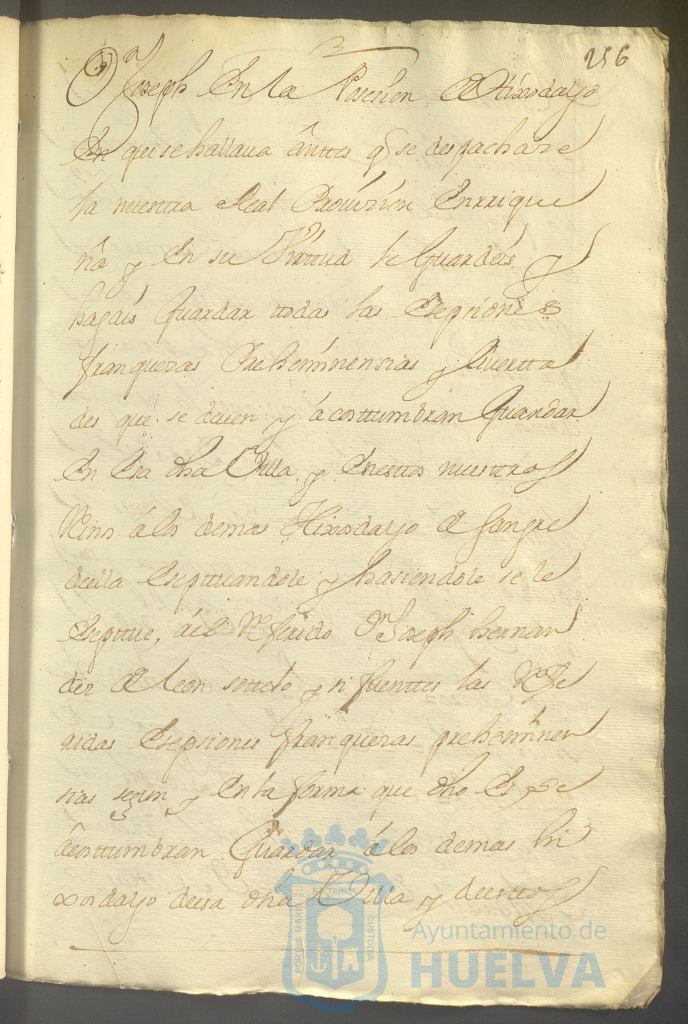 256
Dn Joseph En la Posesion de Hixodalgo
En que se hallava antes q se despachase
la nuestra Real Provision Enrrique
ña y En su Virtud le Guardeis y
hagais Guardar todas las Esepsiones
franquezas Preheminensias y Livertta
des que se deven y acosttumbran Guardar
En Esa dha Villa y Enesttos nuestros
Rnos á los demas Hixosdalgo de Sangre
della Eseptuandole y hasiendole se le
Eseptue, al Referido Dn Joseph hernan
dez de Leon sottelo y sifuenttes las Refe
ridas Esepsiones franquezas prehemĩnen
sias segun y En la forma que dho Es y se
acosttumbran Guardar á los demas hi
xosdalgo desa dha Villa y destos
PORTUS MARIS
ET TERRE
CUSTODIA
Ayuntamiento de
HUELVA